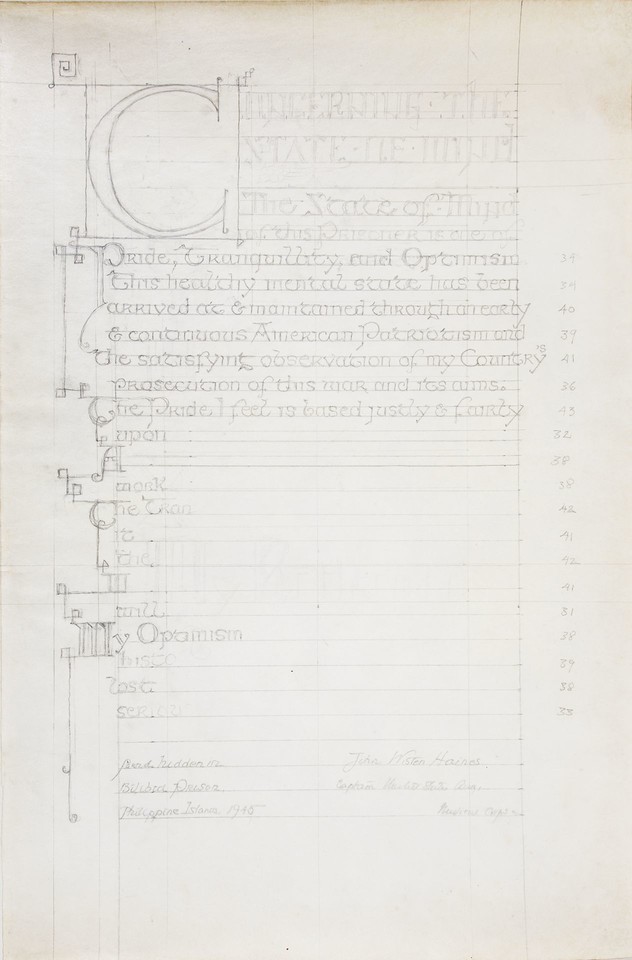 CONCERNING · THE
STATE · OF · MIND
The · State · of · Mind
of this Prisoner is one of
Pride, Tranquillity, and Optimism 34
this healthy mental state has been 34
arrived at & maintained through an early 40
& continuous American Patriotism and 39
the satisfying observation of my Country's 41
prosecution of this war and its aims. 36
The Pride I feel is based justly & fairly 43
upon 32
A 38
mark 38
The Tran 42
it 41
the 42
41
will 31
My Optimism 38
histo 39
lost 38
seriou 33
John Wisten Haines
Bilibid Prison. Captain
Philippine Islands 1945